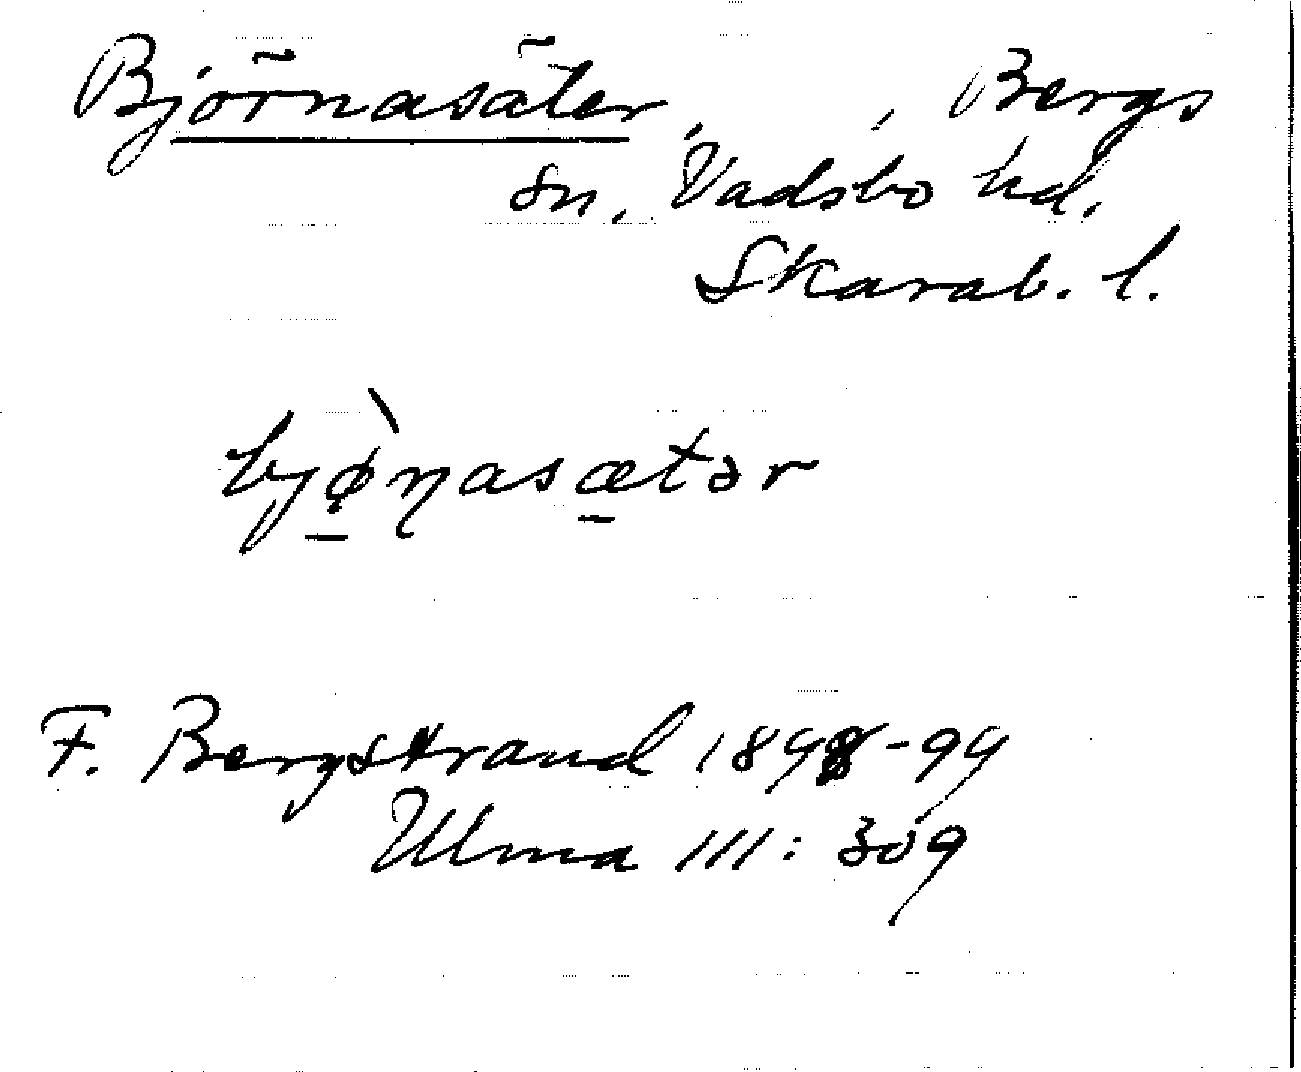 Björnasäter, , Bergs
sn. Vadsbo hd.
Skarab. l.
bjø̀ɳasætər
F. Bergstrand 1898-99
Ulma 111: 309